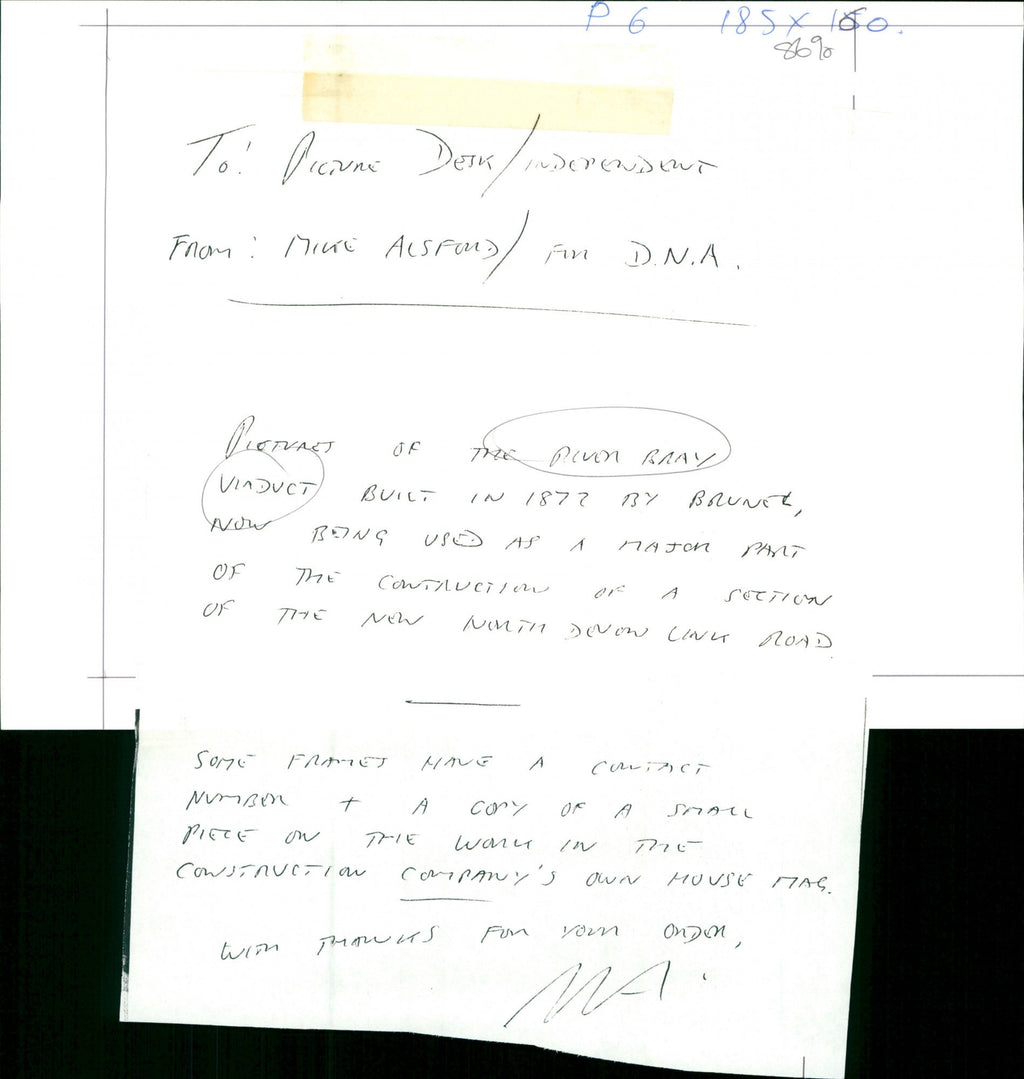 P 6 185 x 150.
86%
To: Picture Desk/INDEPENDENT
FROM: MIKE ALSFORD/ FOR D.N.A.
PICTURES OF THE RIVER BRAY
VIADUCT BUILT IN 1872 BY BRUNEL,
NOW BEING USED AS A MAJOR PART
OF THE CONTRUCTION OF A SECTION
OF THE NEW NORTH DEVON LINK ROAD.
SOME FRAMES HAVE A CONTACT
NUMBER + A COPY OF A SMALL
PIECE ON THE WORK IN THE
CONSTRUCTION COMPANY'S OWN HOUSE MAG.
WITH THANKS FOR YOUR ORDER,
MA.